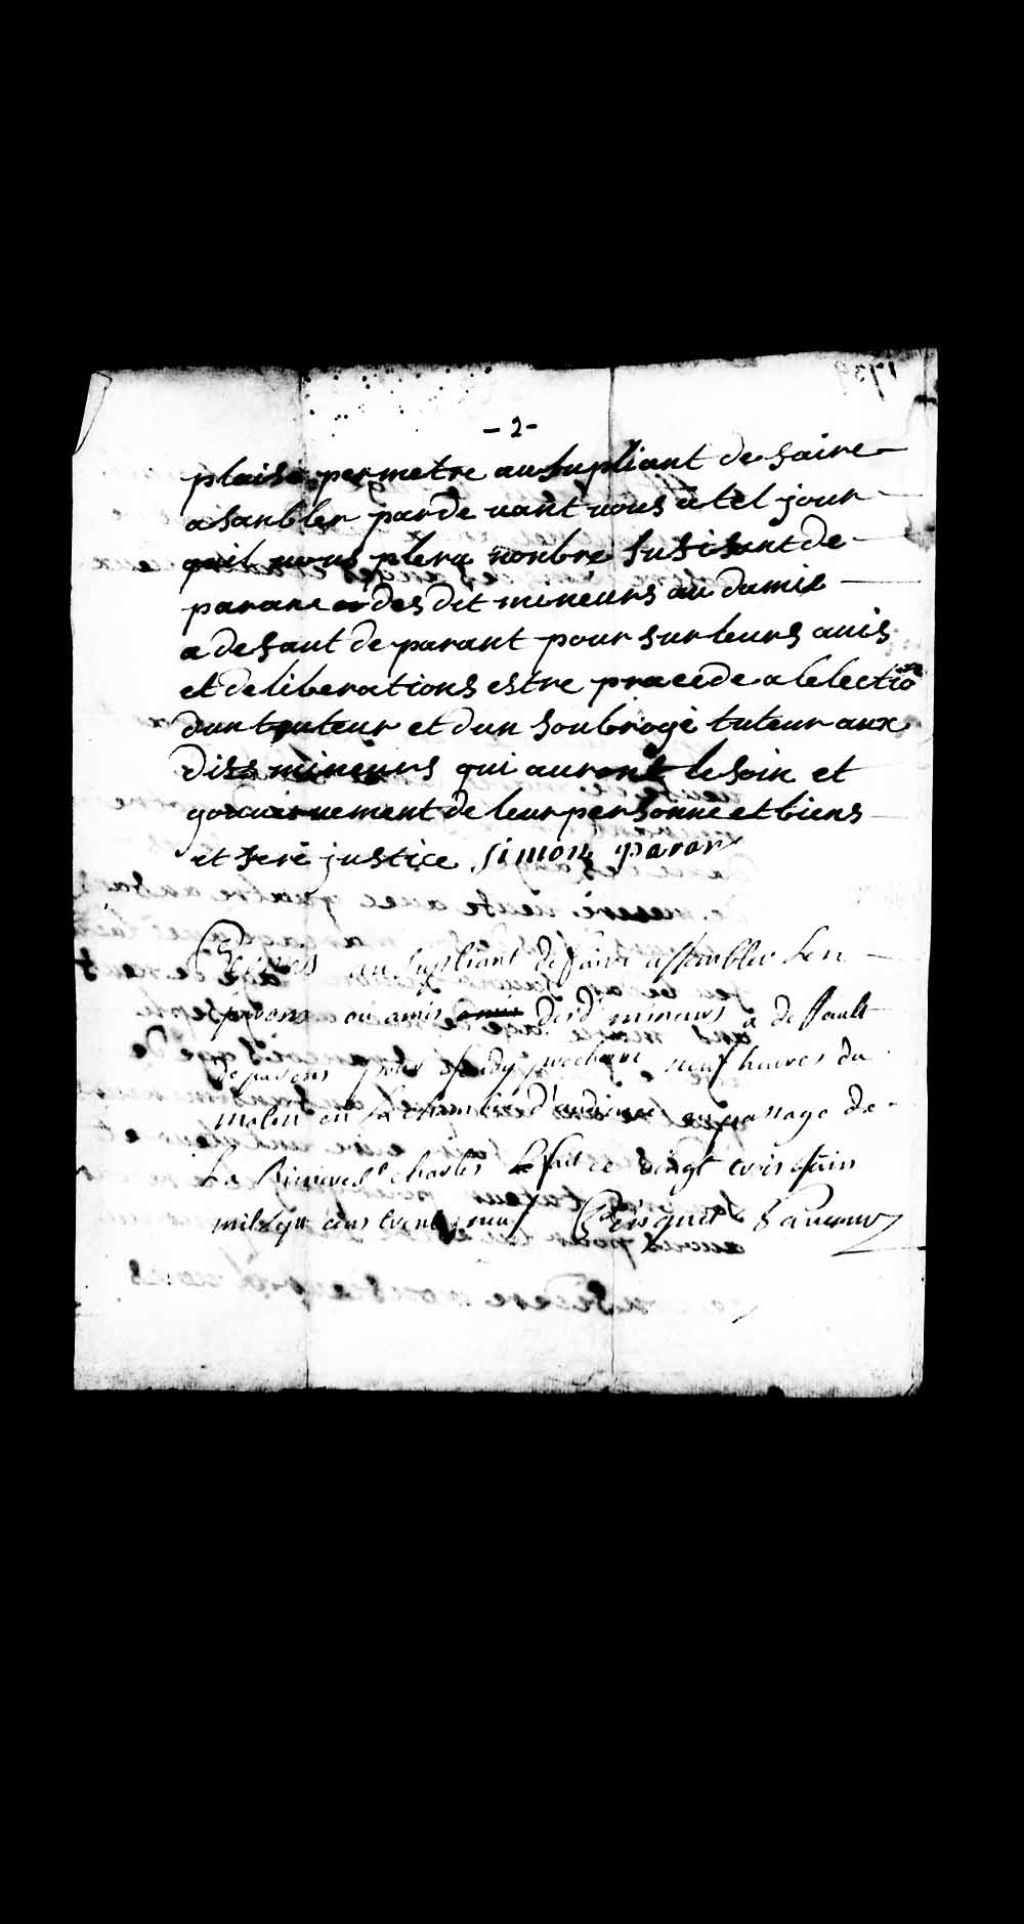 1739
- 2 -
plaise permetre au supliant de faire
asanbler par de vant vous a tel jour
quil vous plera nonbre sufisant de
parans des dit mineurs ou damis
a defaut de parant pour sur leurs avis
et deliberations estre procede a lelection
dun tuteur et dun soubrogé tuteur aux
dits mineurs qui auront le soin et
gouvernement de leur personne et biens
et feré justice Simon parar
au supliant de faire assembler les
parens ou amis desd mineurs a deffault
de parens pour jeudy prochain neuf heures du
matin en la chambre d'audiance en passage de
La Riviere St charles fait ce vingt trois Juin
mil sept cens trente neuf